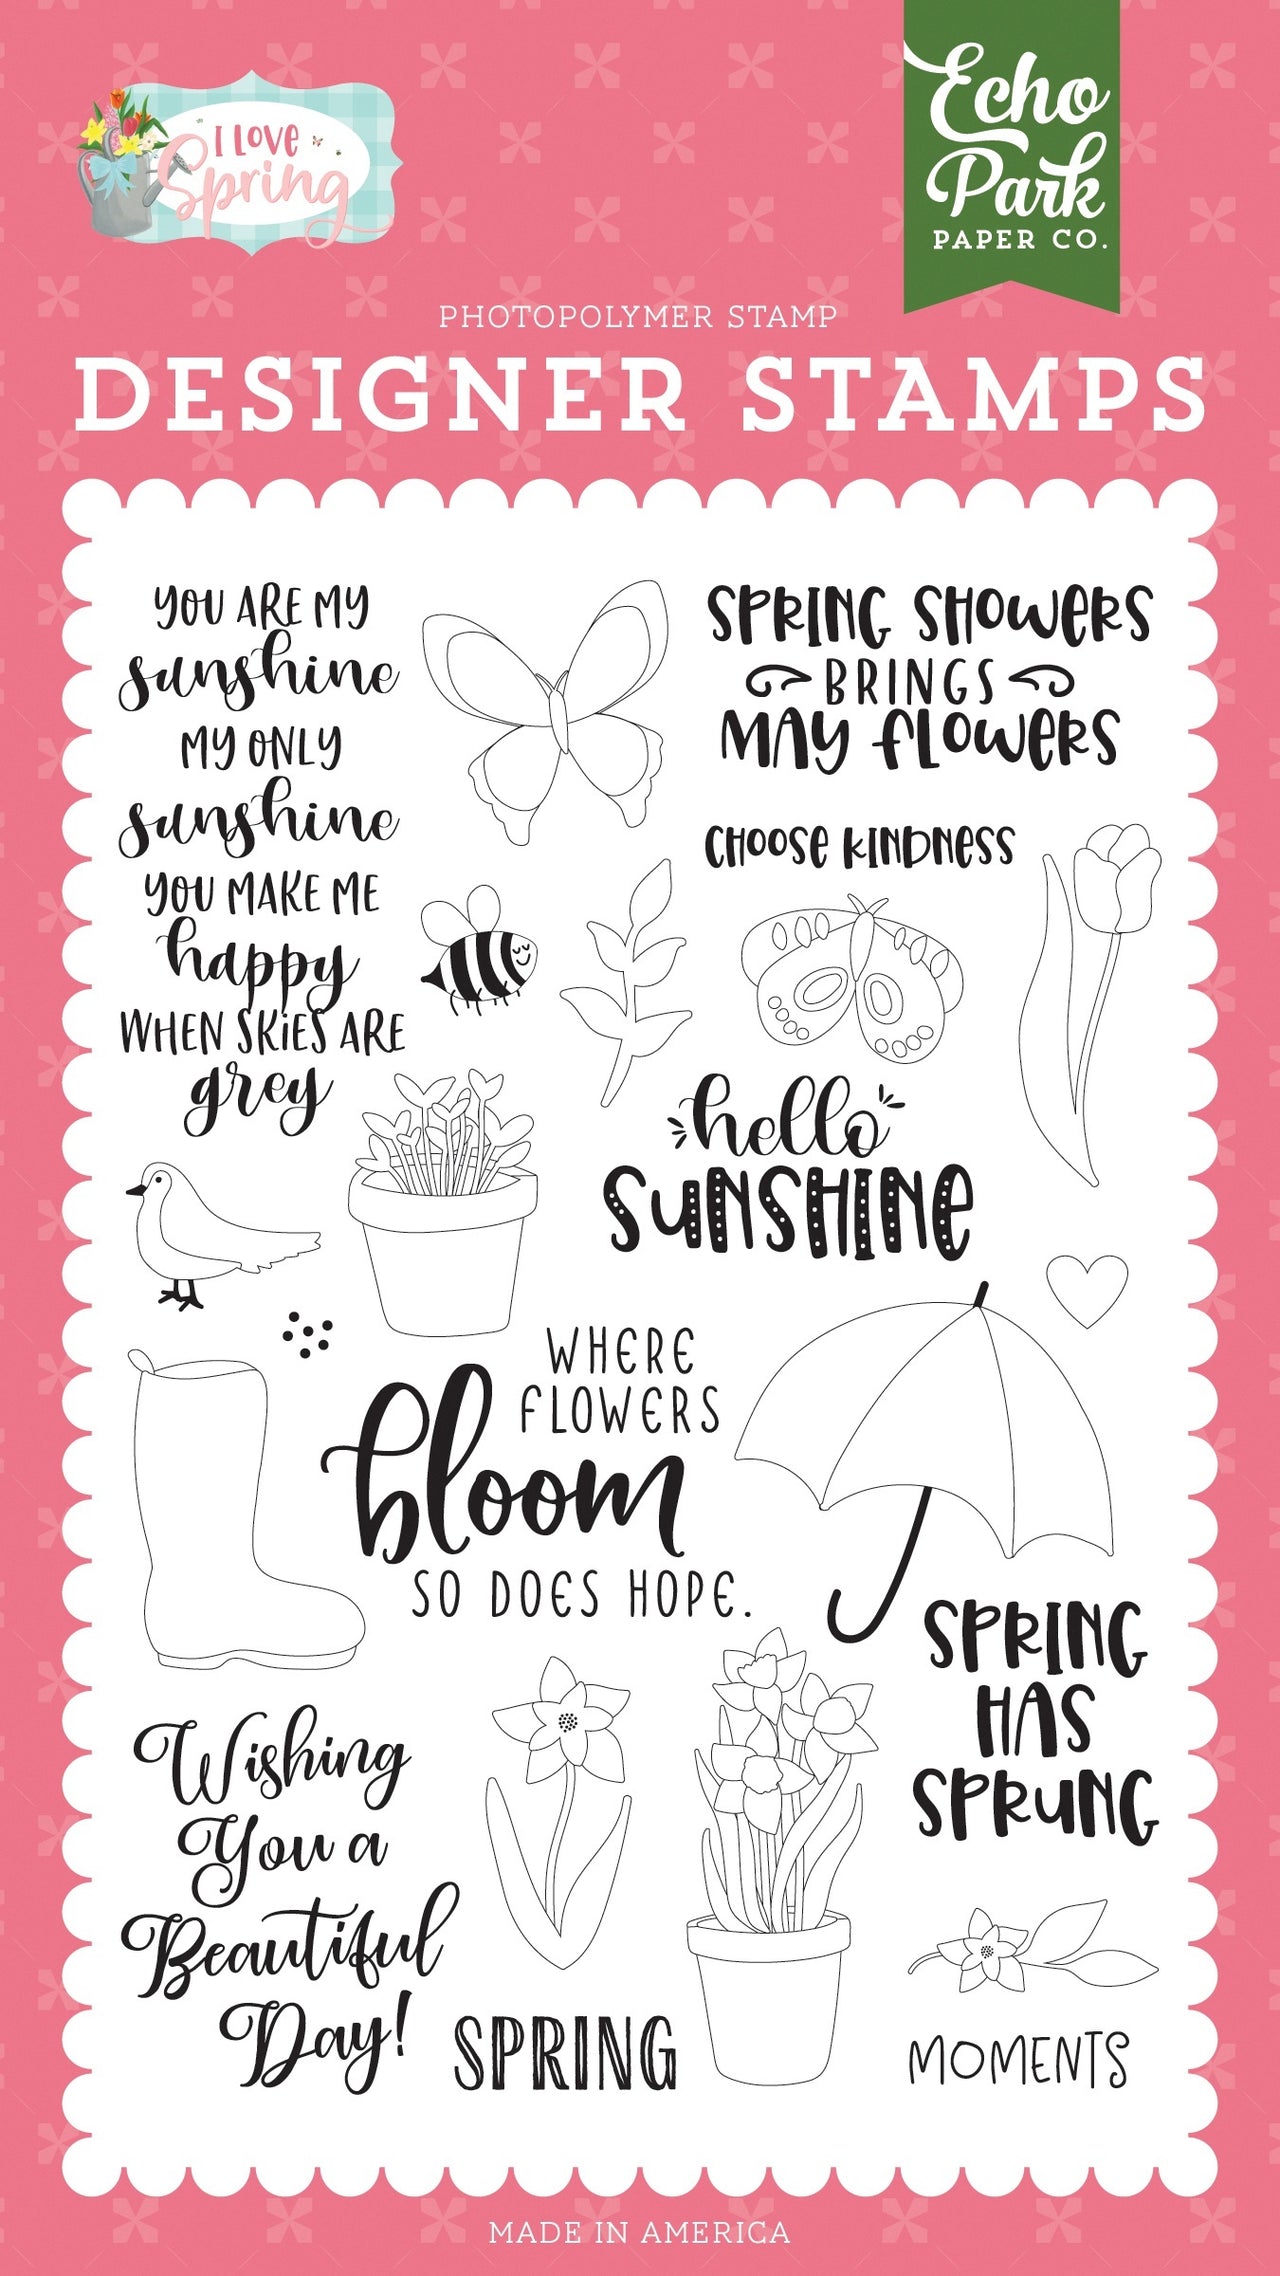 I LOVE
Spring
Echo
Park
PAPER CO.
PHOTOPOLYMER STAMP
DESIGNER STAMPS
YOU ARE MY
sunshine
MY ONLY
sunshine
YOU MAKE ME
happy
WHEN SKiES ARE
grey
SPRING SHOWERS
BRINGS
MAY FLOWERS
CHOOSE KINDNESS
hello
SUNSHINE
WHERE
FLOWERS
bloom
SO DOES HOPE.
SPRING
HAS
SPRUNG
Wishing
You a
Beautiful
Day!
SPRING
MOMENTS
MADE IN AMERICA